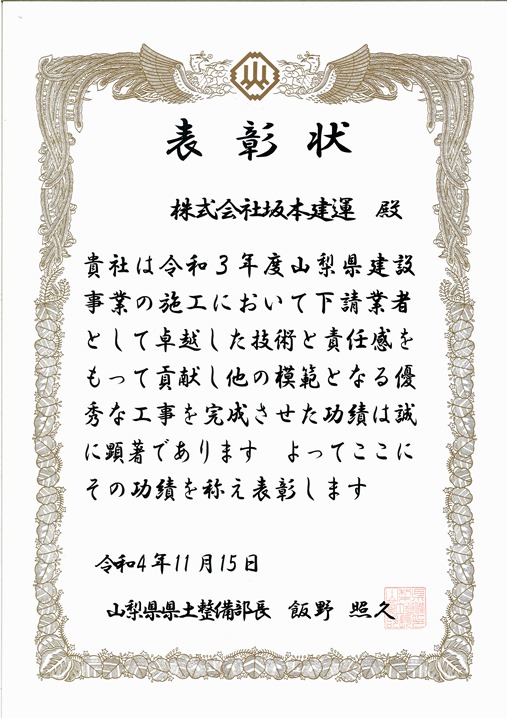 表彰状
株式会社坂本建運 殿
貴社は令和3年度山梨県建設
事業の施工において下請業者
として卓越した技術と責任感を
もって貢献し他の模範となる優
秀な工事を完成させた功績は誠
に顕著であります よってここに
その功績を称え表彰します
令和4年11月15日
山梨県県土整備部長 飯野 照久